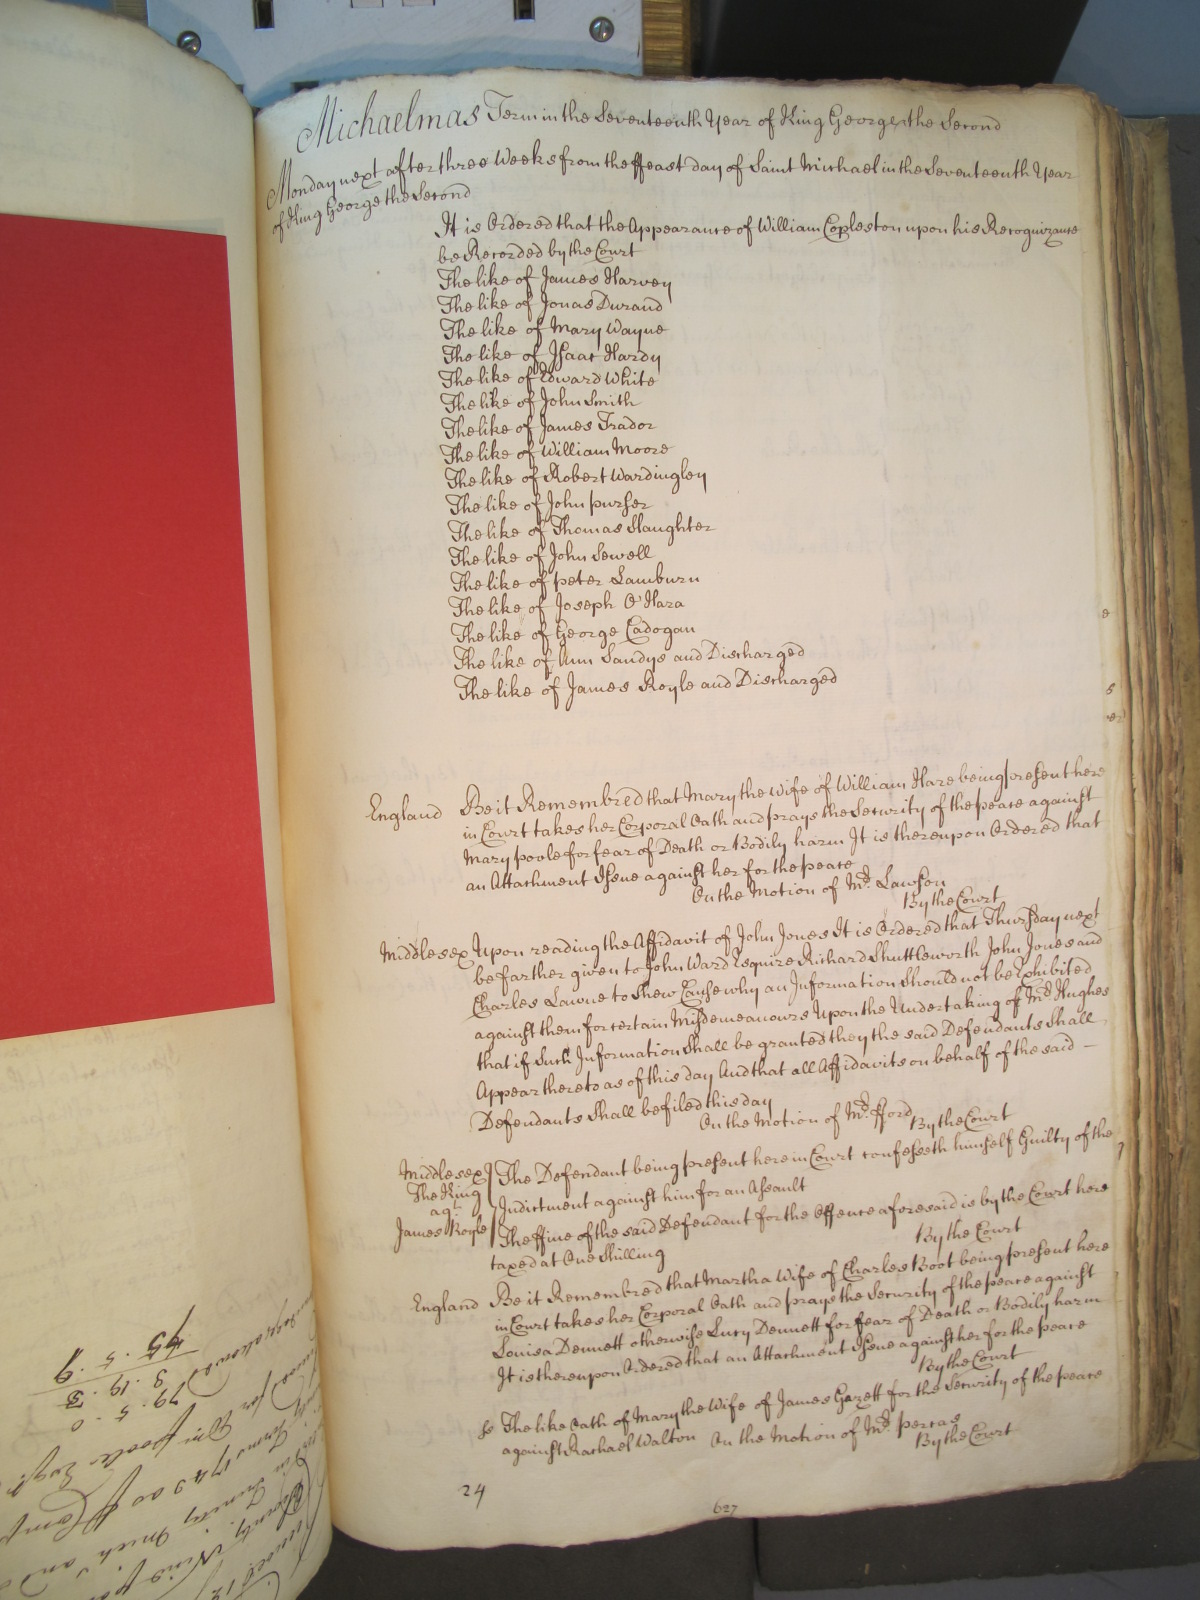 Michaelmas Term in the Seventeenth Year of King George the Second
Monday next after three Weeks from the ffeast day of Saint Michael in the Seventeenth Year
of King George the Second
It is Ordered that the Appearance of William Copleston upon his Recognizance
be Recorded by the Court
The like of James Harvey
The like of Jonas Durand
The like of Mary Wayne
The like of Isaac Hardy
The like of Edward White
The like of John Smith
The like of James Trador
The like of William Moore
The like of Robert Wardingley
The like of John purser
The like of Thomas Slaughter
The like of John Sewell
The like of peter Lamburn
The like of Joseph O'Hara
The like of George Cadogan
The like of Ann Sandys and Discharged
The like of James Royle and Discharged
England Be it Remembred that Mary the Wife of William Hare being present here
in Court takes her Corporal Oath and prays the Security of the peace against
Mary poole for fear of Death or Bodily harm It is thereupon Ordered that
an Attachment Issue against her for the peace
On the Motion of Mr. Lawson
By the Court
Middlesex Upon reading the Affidavit of John Jones It is Ordered that Thursday next
be farther given to John Ward Esquire Richard Shuttleworth John Jones and
Charles Lawne to shew Cause why an Information Should not be Exhibited
against them for certain Misdemeanours Upon the Undertaking of Mr. Hughes
that if Such Information Shall be granted they the said Defendants Shall
Appear thereto as of this day And that all Affidavits on behalf of the said
Defendants Shall be filed this day
On the Motion of Mr. fford
By the Court
Middlesex The Defendant being present here in Court confesseth himself Guilty of the
The King Indictment against him for an Assault
agt.
James Royle The ffine of the said Defendant for the Offence aforesaid is by the Court here
taxed at One Shilling
By the Court
England Be it Remembred that Martha Wife of Charles Boot being present here
in Court takes her Corporal Oath and prays the Security of the peace against
Louisa Dennett otherwise Lucy Dennett for fear of Death or Bodily harm
It is thereupon Ordered that an Attachment Issue against her for the peace
By the Court
ss The like Oath of Mary the Wife of James Gazett for the Security of the peace
against Rachael Walton On the Motion of Mr. percas
By the Court
24
627